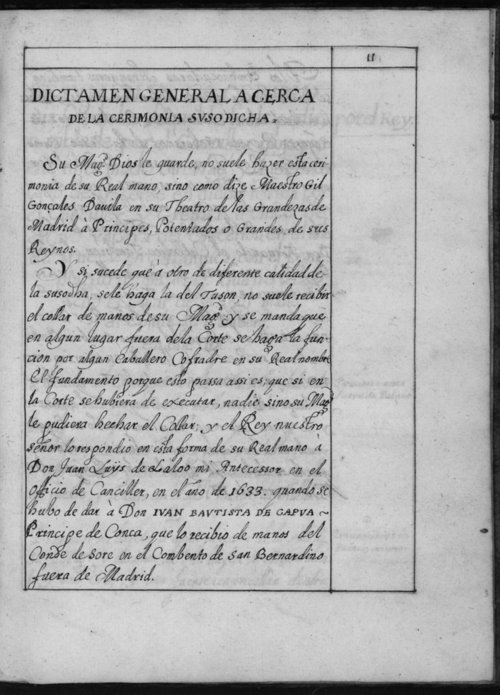 11
DICTAMEN GENERAL ACERCA
DE LA CERIMONIA SUSODICHA.
Su Magd. Dios le guarde, no suele hazer esta ceri
monia de su Real mano, sino como dize Maestro Gil
Gonçales Dauila en su Theatro de las Grandezas de
Madrid à Principes, Potentados o Grandes de sus
Reynos.
Y si, sucede que à otro de diferente calidad de
la susodha, sele haga la del Tuson, no suele recibir
el collar de manos de su Magd. y se manda que
en algun lugar fuera dela Corte se haga la fun
cion por algun Caballero Cofradre en su Real nombre
El fundamento porque esto passa assi es, que si en
la Corte se hubiera de executar, nadie sino su Magd.
le pudiera hechar el Collar; y el Rey nuestro
señor lo respondio en esta forma de su Real mano à
Don Juan Luÿs de Laloo mi Antecessor en el
officio de Canciller, en el año de 1633. quando se
hubo de dar à DON IVAN BAVTISTA DE CAPVA ~
Principe de Conca, que lo recibio de manos del
Conde de Sore en el Combento de San Bernardino
fuera de Madrid.